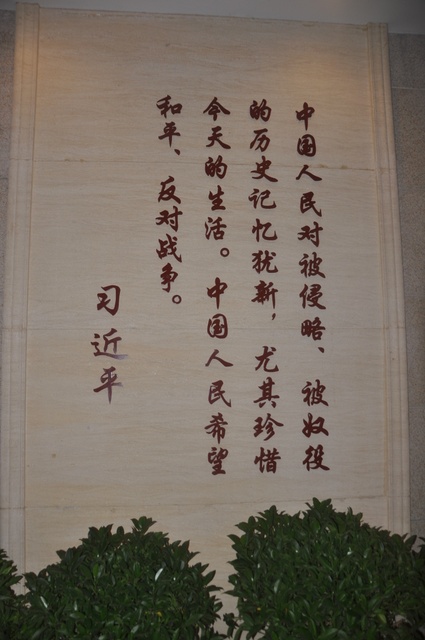 中国人民对被侵略、被奴役
的历史记忆犹新，尤其珍惜
今天的生活。中国人民希望
和平、反对战争。
习近平